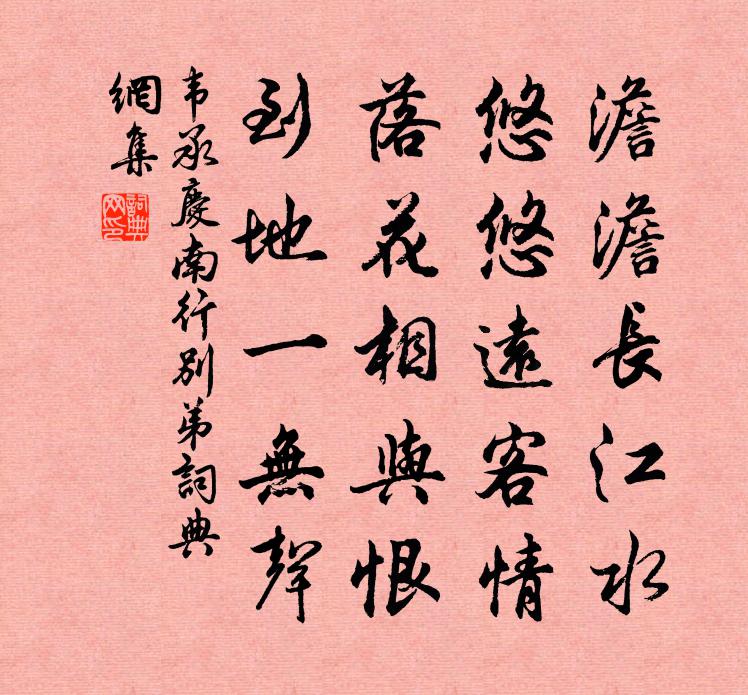 澹澹長江水
悠悠遠客情
落花相與恨
到地一無聲
韦承慶南行別弟詞典
網集
詞典
网印